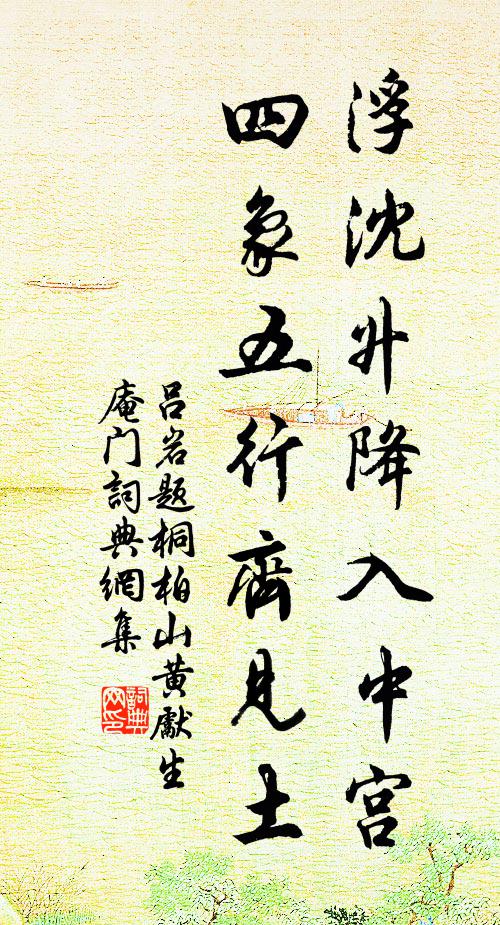 浮沈升降入中宮
四象五行齊見土
吕岩题桐柏山黄獻生
庵门詞典網集
詞典网印